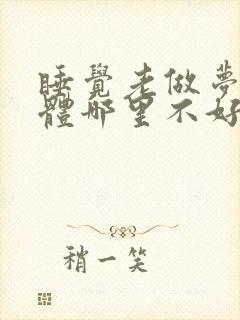 睡覺老做夢
體哪里不好
稍一笑